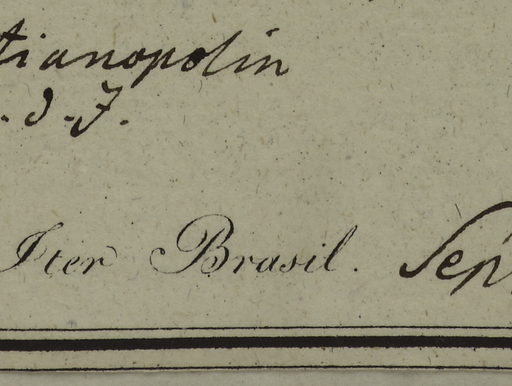 tianopolin
. d . J.
Iter Brasil. Sep